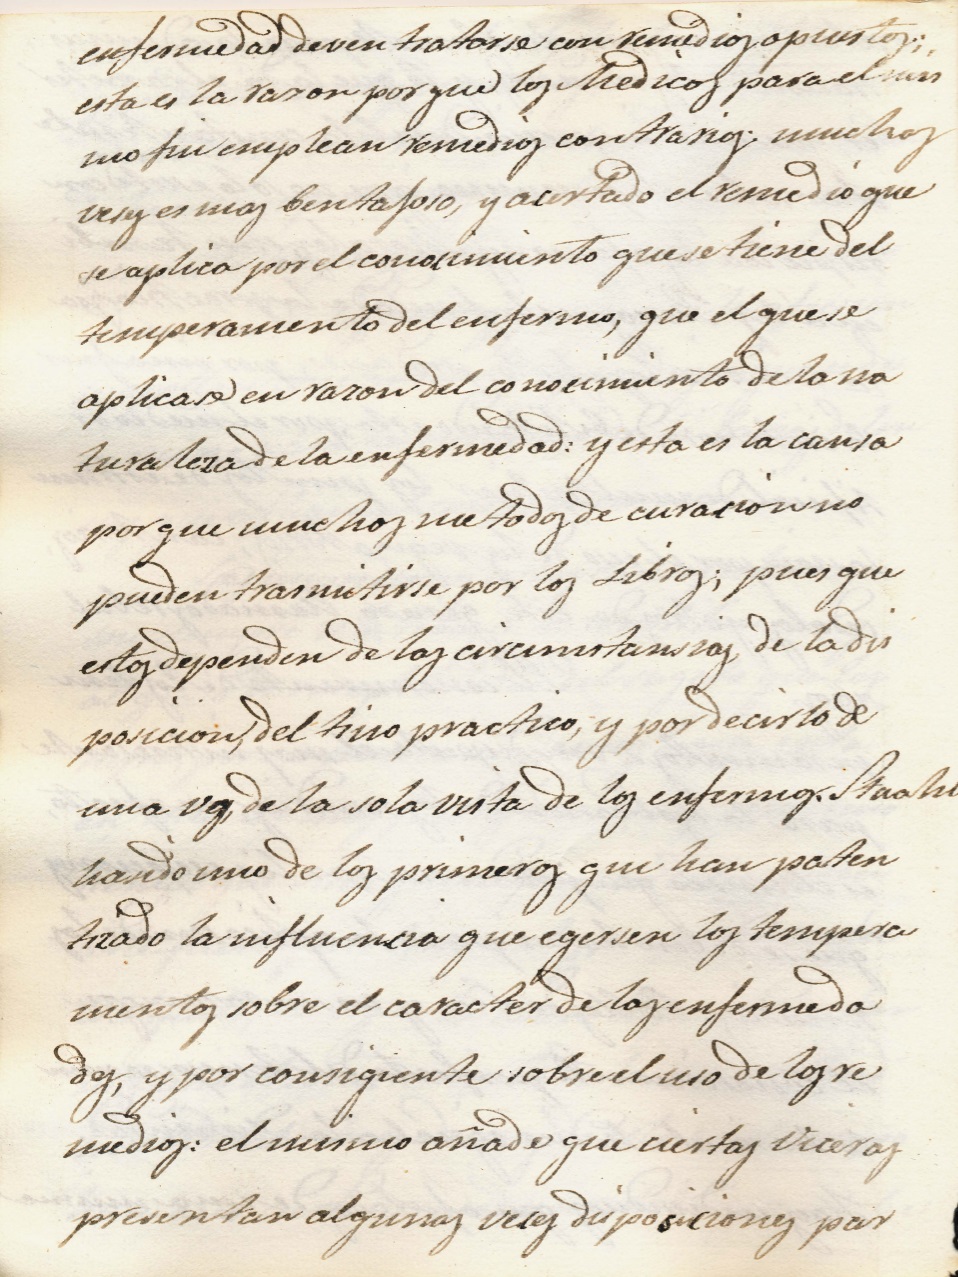 enfermedad deven tratarse con remedios opuestos;
esta es la razon por que los Medicos para el mis
mo fin emplean remedios contrarios: muchas
veses es mas bentajoso, y acertado el remedio que
se aplica por el conocimiento que se tiene del
temperamento del enfermo, que el que se
aplicase en razon del conocimiento de la na
turaleza de la enfermedad: y esta es la causa
por que muchos metodos de curacion no
pueden trasmitirse por los Libros; pues que
estos dependen de las circunstansias, de la dis
posicion, del tino practico, y por decirlo de
una vez, de la sola vista de los enfermos. Staahl
ha sido uno de los primeros que han paten
tizado la influencia que egersen los tempera
mentos sobre el caracter de las enfermeda
des, y por consigiente sobre el uso de los re
medios: el mismo añade que ciertas Viceras
presentan algunas veses disposiciones par